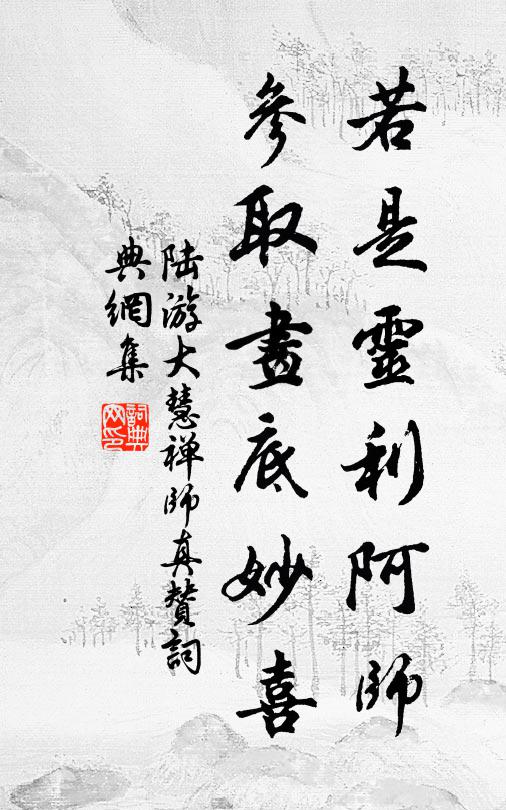 若是靈利阿師
參取畫底妙喜
陆游大慧禅师真赞詞
典網集
詞典
网印